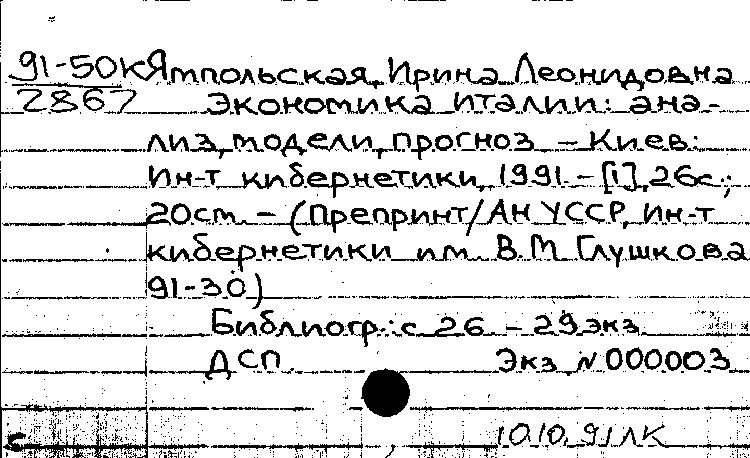 91-50К Ямпольская, Ирина Леонидовна
2867 Экономика Италии: ана-
лиз, модели, прогноз. – Киев:
Ин-т кибернетики, 1991. – [1], 26с.;
20см. – (Препринт/АН УССР, Ин-т
кибернетики им. В.М. Глушкова
91-30)
Библиогр.: с. 26. – 29 экз.
ДСП. Экз. N 000003
с 10.10.91 ЛК